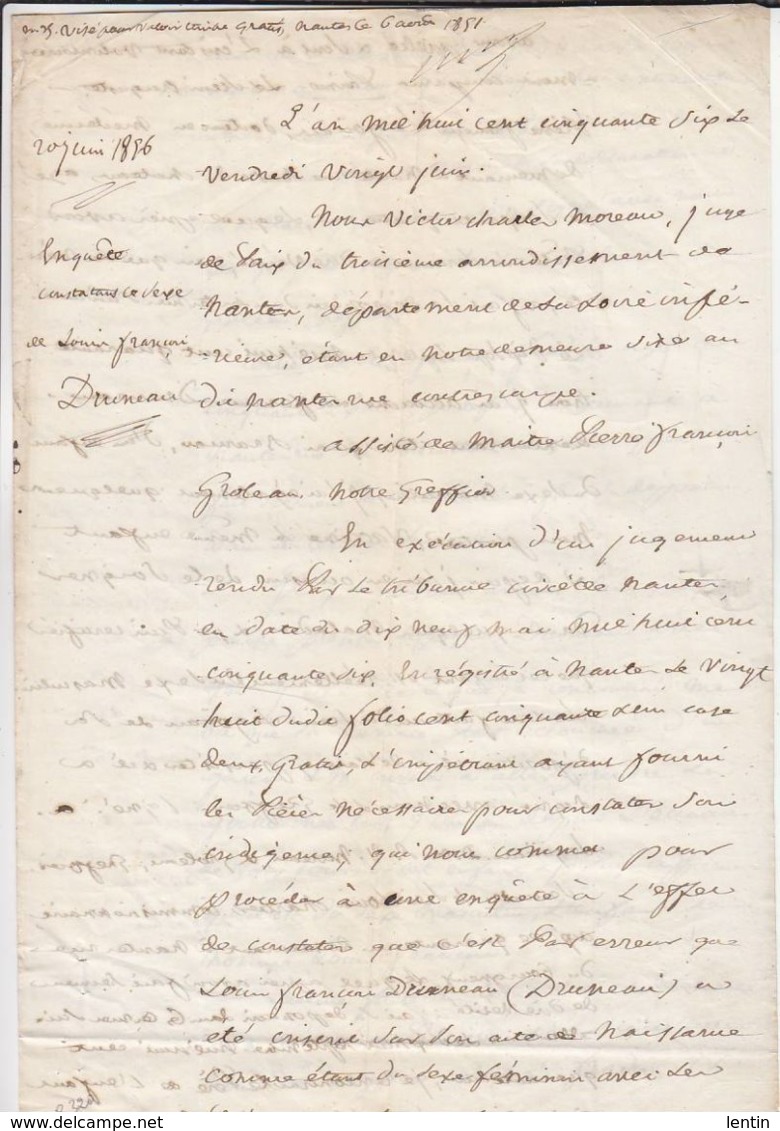 n. 25. Visé pour valoir timbre Gratis, Nantes le 6 août 1851
20 juin 1856
Enquête
constatant le sexe
de Louis françois
Druneau
L'an mil huit cent cinquante six Le
vendredi vingt juin.
Nous Victor charles moreau, juge
de Paix du troisième arrondissement de
nantes, département de La Loire infé-
-rieure, étant en notre demeure sise au
dit nantes rue contrescarpe.
assisté de Maitre Pierre françois
Groleau notre Greffier
En exécution d'un jugement
rendu Par Le tribunal civil de nantes
en date du dix neuf mai mil huit cent
cinquante six. Enregistré à nantes Le vingt
huit dudit folio cent cinquante case
deux, Gratis, L'impétrant ayant fourni
les Pièces nécessaires pour constater son
indigence, qui nous commet pour
procéder à une enquête à L'effet
de constater que c'est Par erreur que
Louis françois Druneau (Druneau) a
été inscrit sur son acte de naissance
comme étant du sexe féminin avec les
lentin